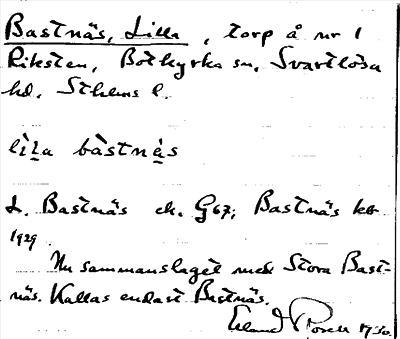 Bastnäs, Lilla, torp å nr 1
Riksten, Botkyrka sn, Svartlösa
hd. Sthlms l.
lìla bàstnäs
L. Bastnäs ek. G67; Bastnäs kb
1929.
Nu sammanslaget med Stora Bast-
näs. Kallas endast Bastnäs.
Erland 1930.